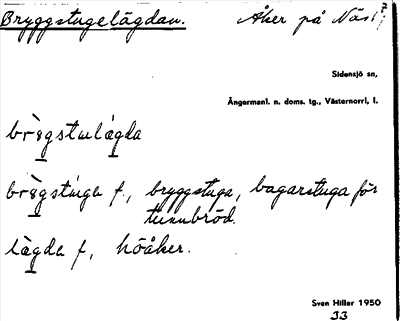 Bryggstugelägdan. Åker på Näs 1⁷
Sidensjö sn,
Ångermanl. n. doms. tg., Västernorrl, l.
brygstulägda
brygstúga f., bryggstuga, bagarstuga för
tunnbröd.
lägda f, höåker.
Sven Hiller 1950
33